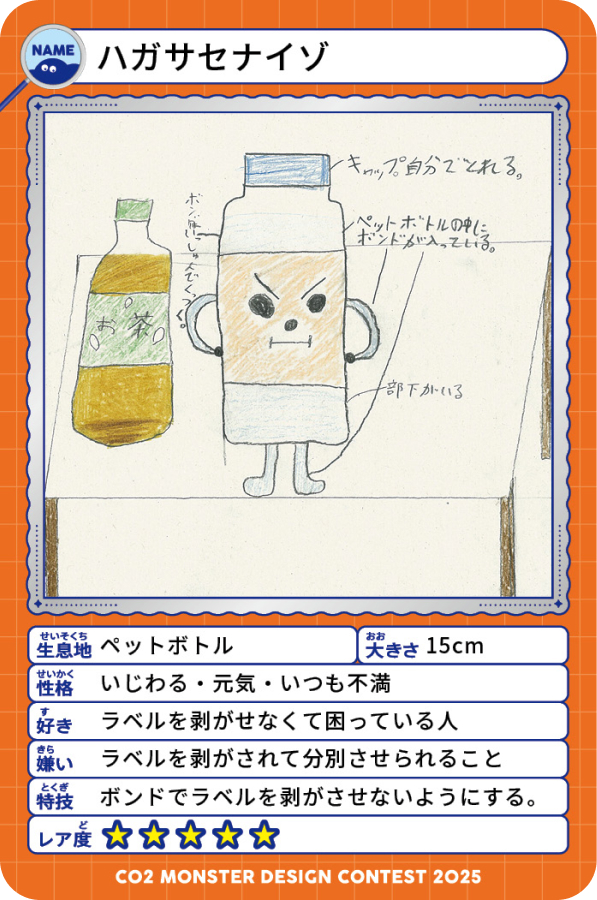 NAME
ハガサセナイゾ
キャップ自分でとれる。
ペットボトルの中に
ボンドが入っている。
部下がいる
お茶
せいそくち
生息地 ペットボトル
おお
大きさ 15cm
せいかく
性格 いじわる・元気・いつも不満
す
好き ラベルを剥がせなくて困っている人
きら
嫌い ラベルを剥がされて分別させられること
とくぎ
特技 ボンドでラベルを剥がさせないようにする。
ど
レア度
CO2 MONSTER DESIGN CONTEST 2025